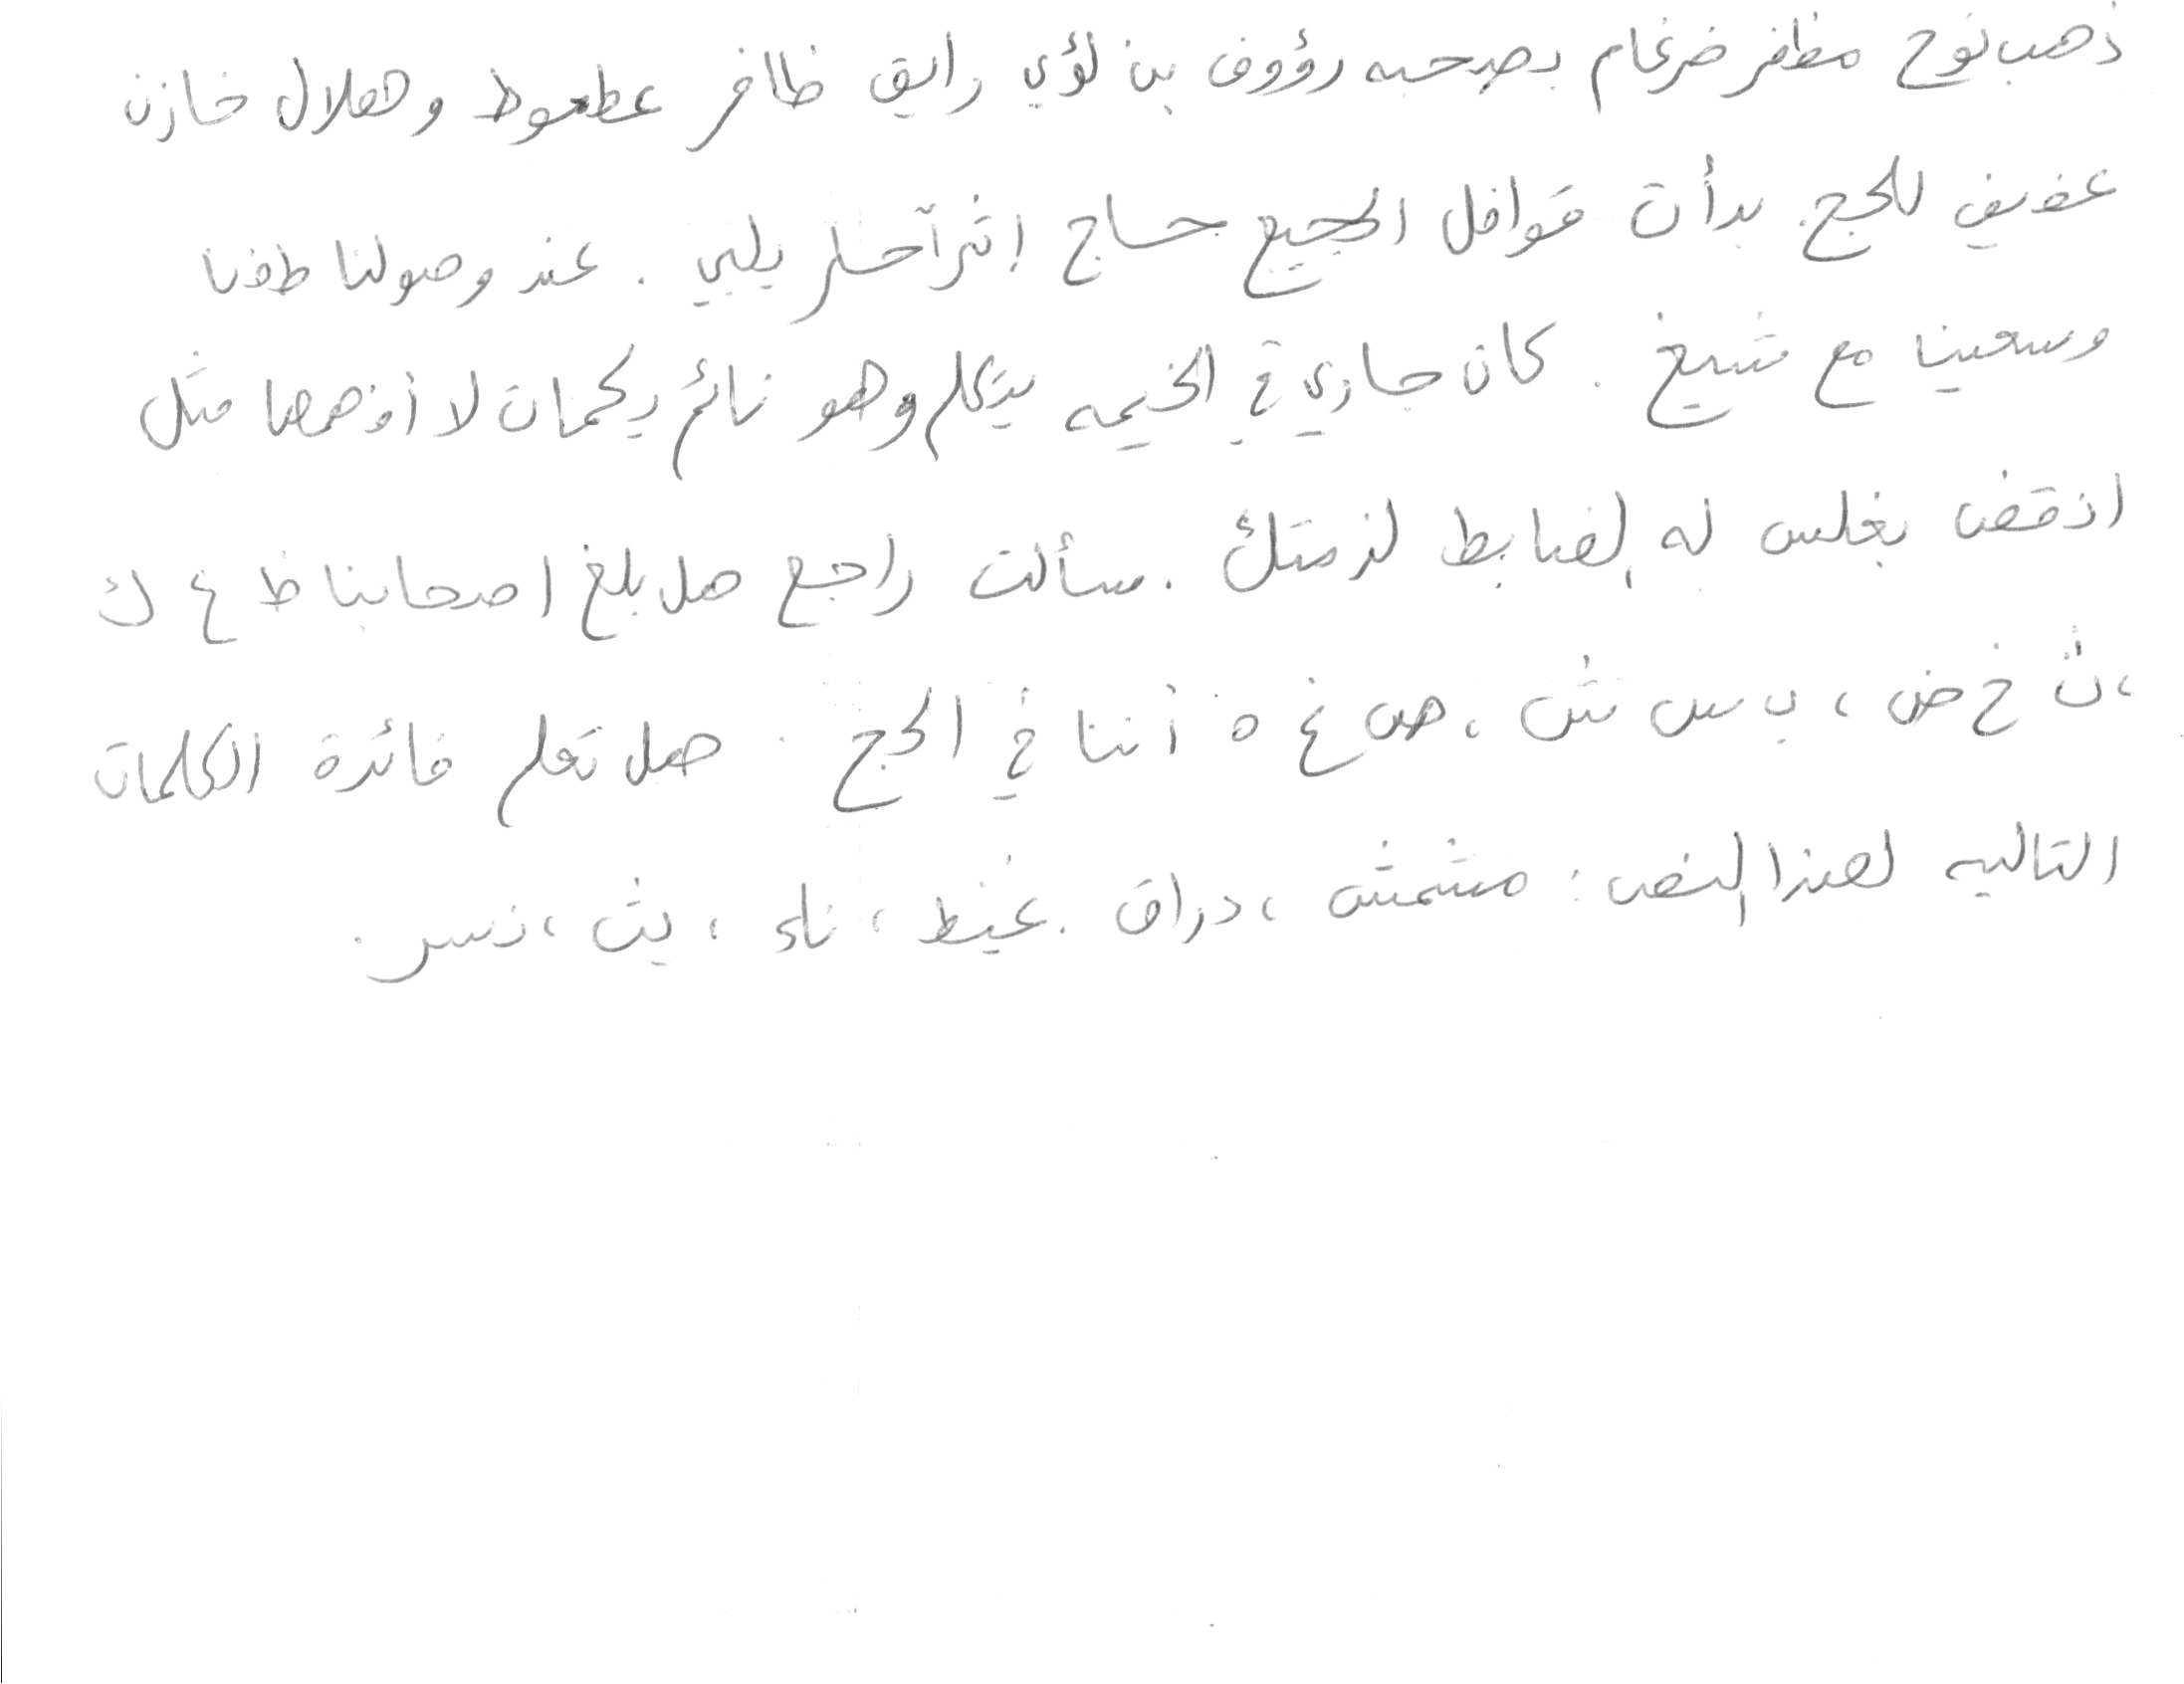 ذهب نوح مظفر ضرغام بصحبه رؤوف بن لؤي رايق ظافر عطعوط وهلال خازن
عفيف للحج. بدأت قوافل الحجيج حاج إثر آخر يلبي. عند وصولنا طفنا
وسعينا مع شيخ. كان جاري في الخيمه يتكلم وهو نائم بكلمات لا أفهمها مثل
انقض بغلس له لضابط لزمتك. سألت راجع هل بلغ اصحابنا ظ ع ك
، ث خ ض، ب س ش، ص غ ه أننا في الحج. هل تعلم فائدة الكلمات
التاليه لهذا النص: مشمش، دراق. غيظ، ناء، يث، نسر.